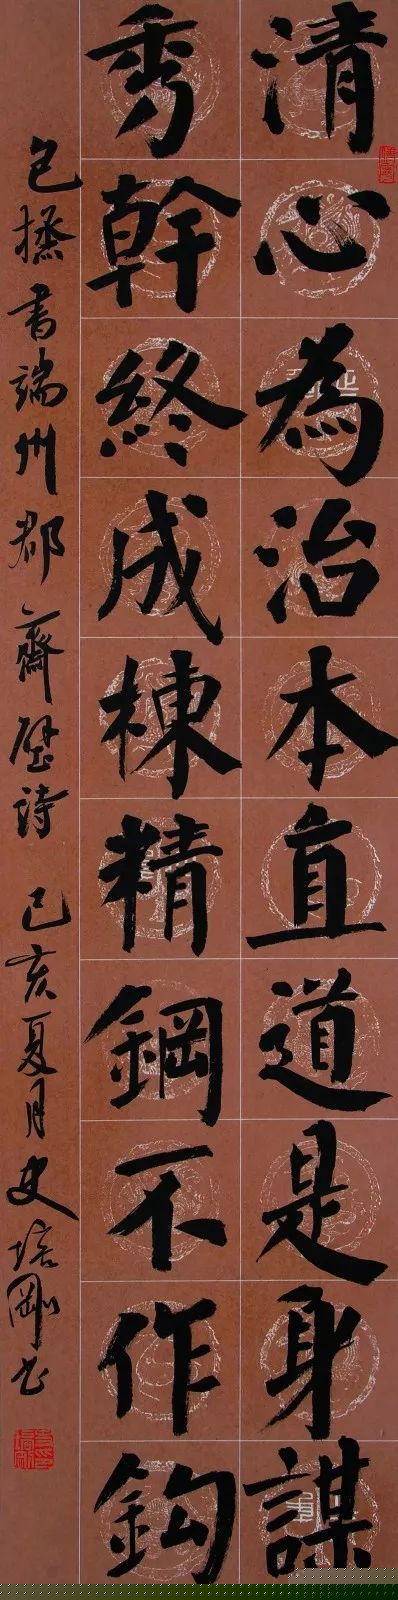 清心為治本直道是身謀
秀幹終成棟精鋼不作鈎
包拯書端州郡齋壁詩 己亥夏月史培剛書